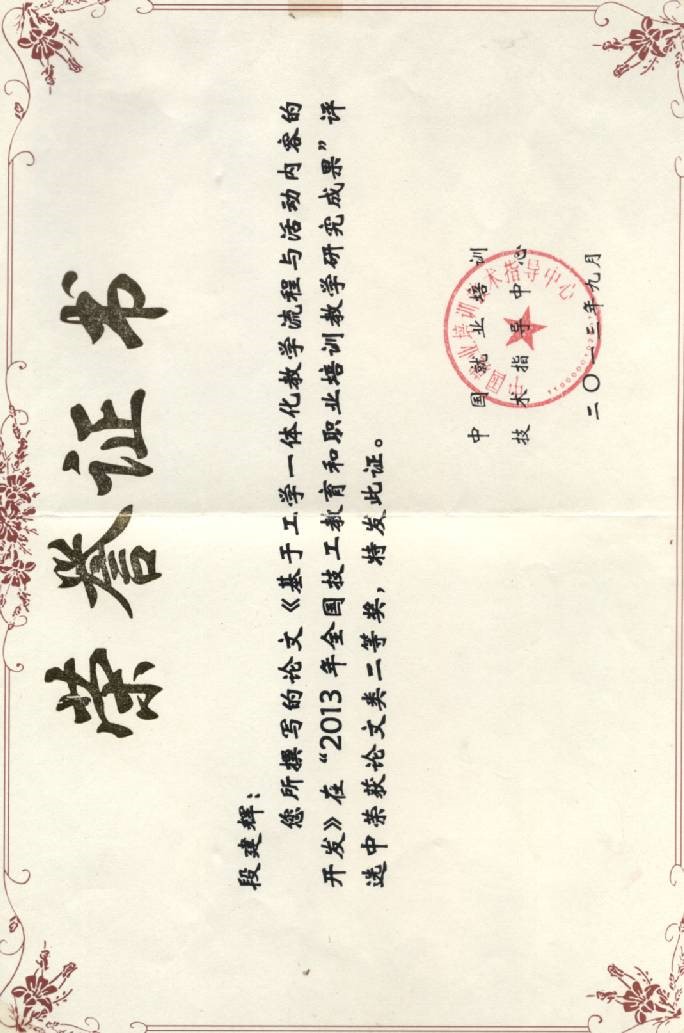 荣誉证书
段建辉：
您所撰写的论文《基于工学一体化教学流程与活动内容的
开发》在“2013年全国技工教育和职业培训教学研究成果”评
选中荣获论文类二等奖，特发此证。
中国就业培训
技术指导中心
中国就业培训技术指导中心
二〇一三年九月